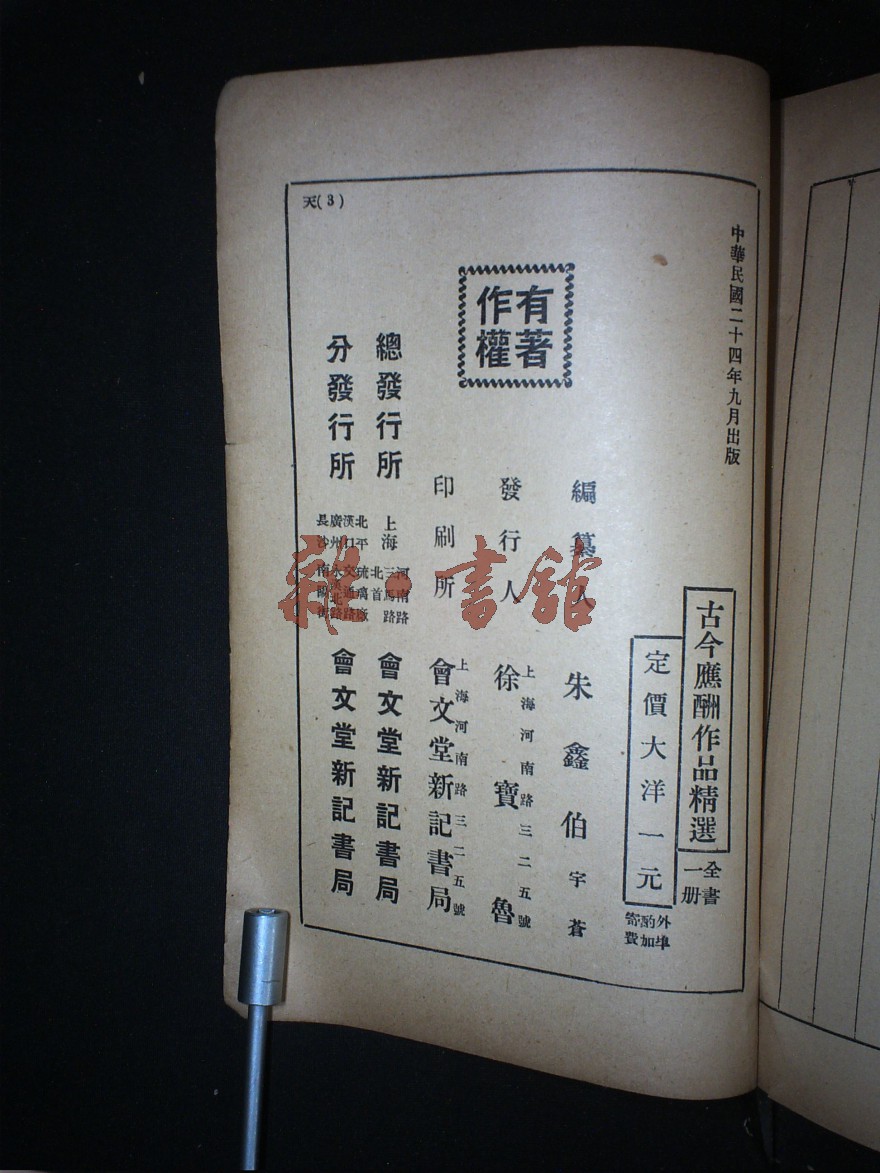 中華民國二十四年九月出版
古今應酬作品精選
全書一册
定價大洋一元
外埠酌加寄費
編纂人 朱鑫伯 字蒼
發行人 徐寶魯
上海河南路三二五號
印刷所 會文堂新記書局
上海河南路三二五號
有著作權
總發行所 上海 河南路三馬路北首 會文堂新記書局
分發行所 北平 琉璃廠 漢口 交通路 廣州 永漢北路 長沙 會文堂新記書局
天(3)